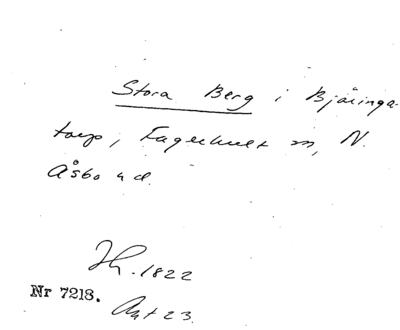 Stora Berg i Bjäringa-
torp, Fagerhult sn, N.
Åsbo hd.
Jh. 1822
Nr 7218. Akt 23.